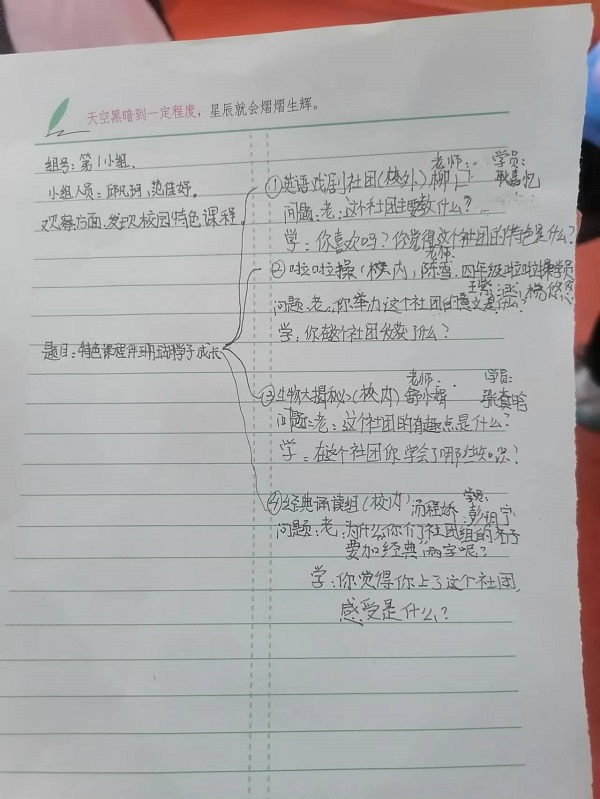 天空黑暗到一定程度，星辰就会熠熠生辉。
组号：第1小组.
小组人员：邱凡珂,范佳妤。
观察方面、发现校园特色课程。
题目：特色课程伴玥琅学子成长
老师： 学员：
①英语戏剧社团(校外) 柳 耿嘉忆
问题：老：这个社团主要教什么？
学：你喜欢吗？你觉得这个社团的特色是什么？
老师：
②啦啦操（校内，陈雪．四年级啦啦操学员
王紫 杨悠
问题：老：你举办这个社团的意义是什么？
学：你在这个社团收获了什么？
老师： 学员：
③生物大揭秘(校内) 舒小娟 张真晗
问题：老：这个社团的有趣点是什么？
学：在这个社团你学会了哪些知识？
学员：
④经典诵读组(校内) 汤程娇 彭玥宁
问题：老：为什么你们社团组的名字
要加“经典”两字呢？
学：你觉得你上了这个社团，
感受是什么？